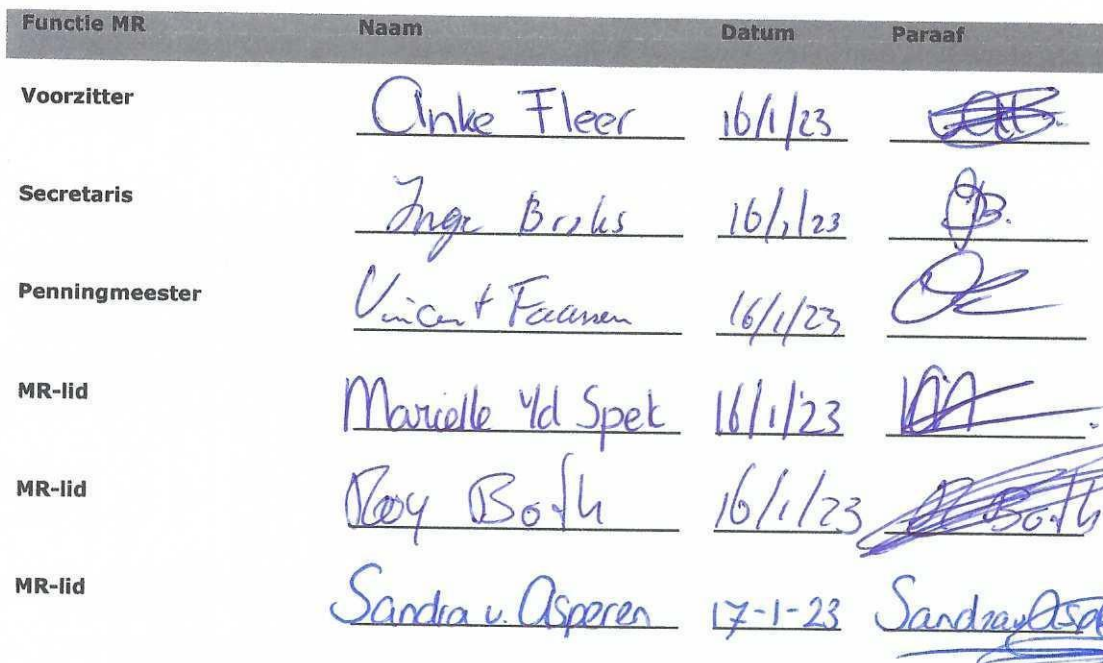 Functie MR Naam Datum Paraaf
Voorzitter Anke Fleer 16/1/23
Secretaris Inge 16/1/23
Penningmeester Vincent Faassen 16/1/23
MR-lid Marielle v/d Spek 16/1/'23
MR-lid Roy Both 16/1/23 Both
MR-lid Sandra v. Asperen 17-1-23 Sandra v Aspe